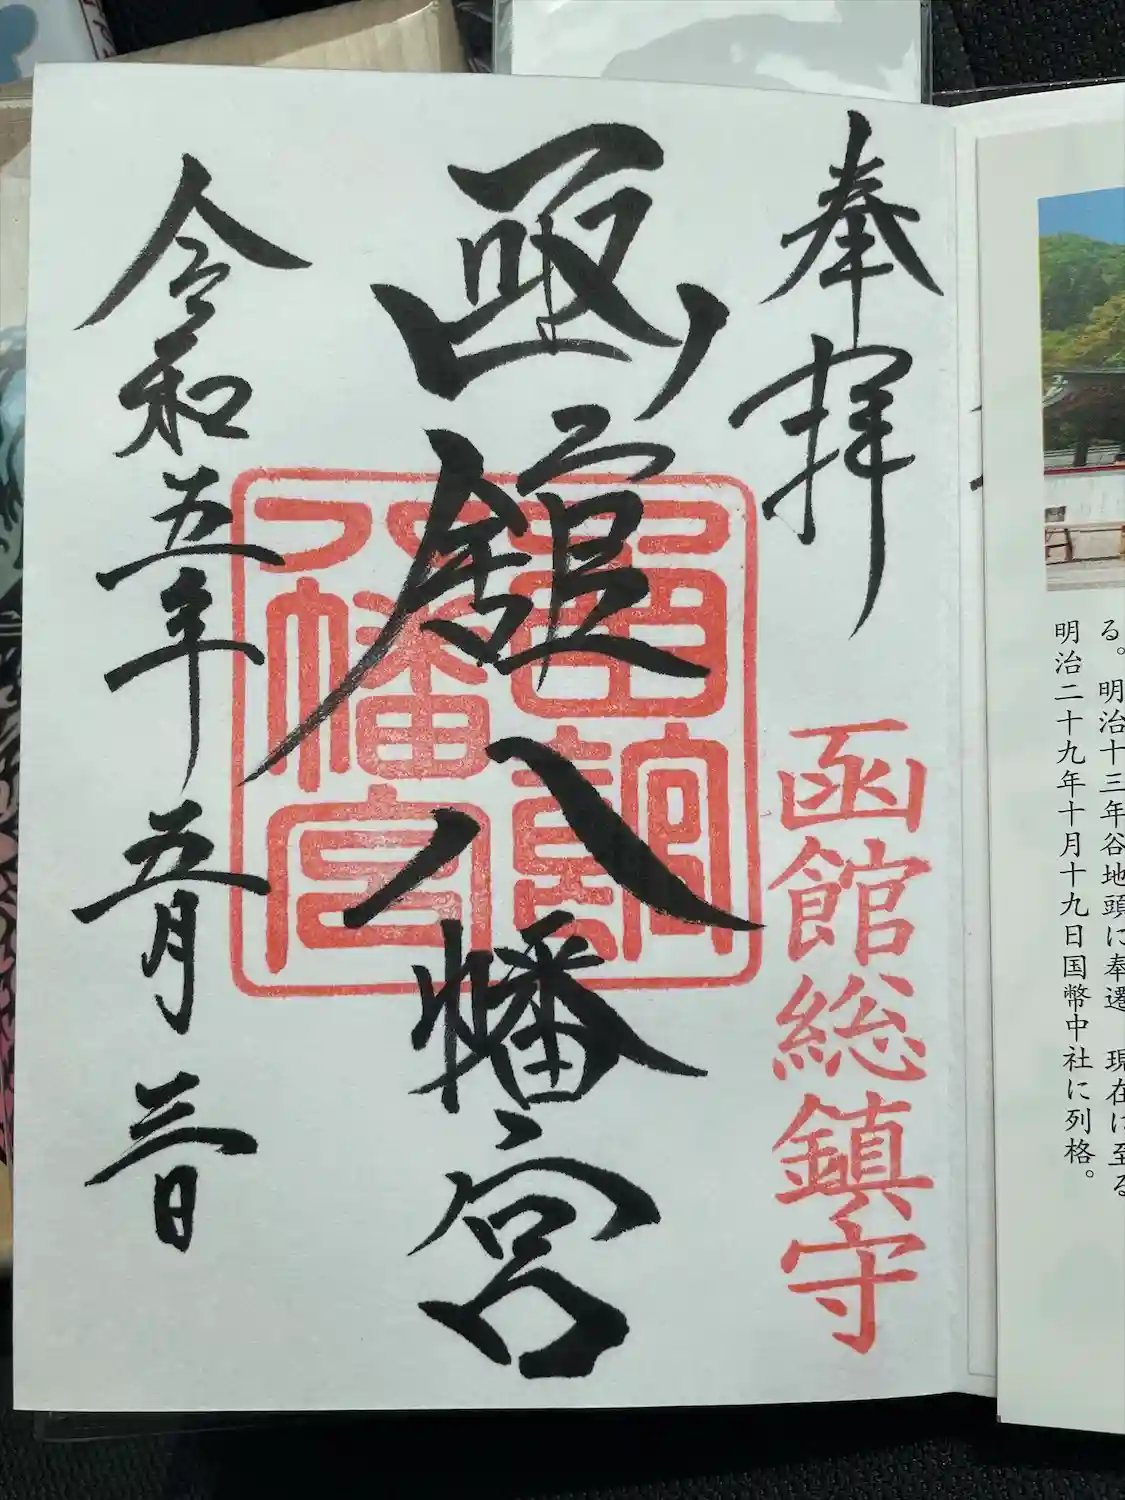 る。明治十三年谷地頭に奉遷 現在に至る
明治二十九年十月十九日国幣中社に列格。
奉拝
函館総鎮守
函館八幡宮
函館八幡宮
令和五年五月三日